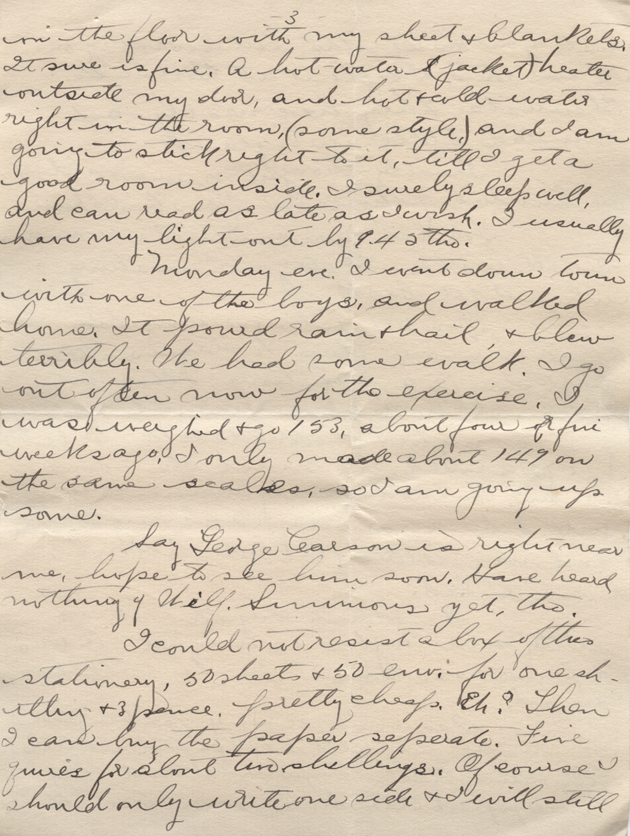 3
on the floor with my sheet & blankets.
It sure is fine. A hot water (jacket) heater
outside my door, and hot & cold water
right in the room, (some style,) and I am
going to stick right to it, till I get a
good room inside. I surely sleep well,
and can read as late as I wish. I usually
have my light out by 9.45 tho.
Monday eve. I went down town
with one of the boys, and walked
home. It poured rain & hail, & blew
terribly. We had some walk. I go
out often now for the exercise. I
was weighed & go 153, about four or five
weeks ago, I only made about 149 on
the same scales, so I am going up
some.
Say George Carson is right near
me, hope to see him soon. Have heard
nothing of Wilf. Simmons yet, tho.
I could not resist a box of this
stationery, 50 sheets & 50 env. for one sh-
illing & 3 pence. pretty cheap. Eh? Then
I can buy the paper seperate. Five
quires for about two shellings. Of course I
should only write one side & I will still